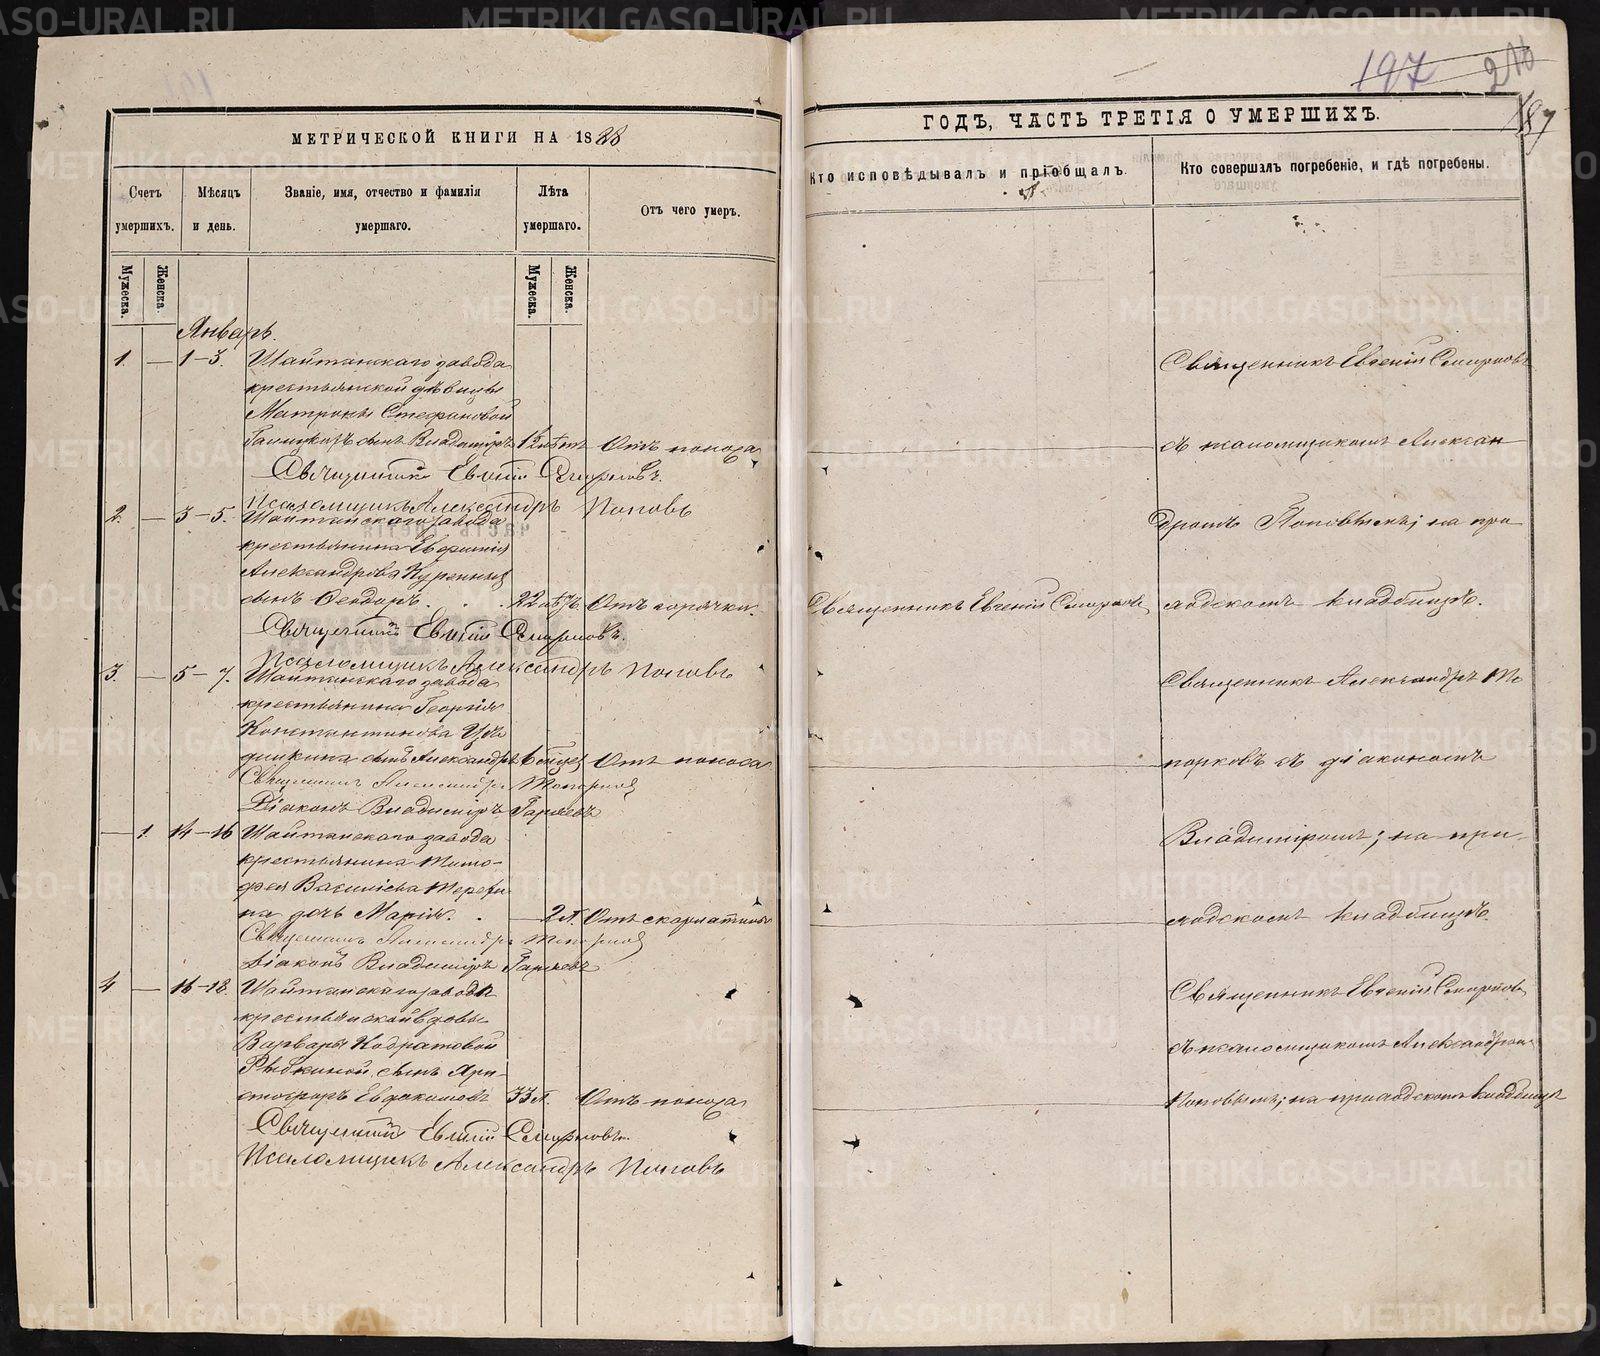 197 210
187
МЕТРИЧЕСКОЙ КНИГИ НА 1888
Счетъ умершихъ.
Мѣсяцъ и день.
Званіе, имя, отчество и фамилія умершаго.
Лѣта умершаго.
Отъ чего умеръ.
Мужеска. Женска.
Мужеска. Женска.
Январь.
1. — 1–3. Шайтанскаго завода
крестьянской дѣвицы
Матроны Стефановой
сынъ Владиміръ Отъ поноса
Священникъ Евгеній Смирновъ.
Псаломщикъ Александръ Поповъ
2. — 3–5. Шайтанскаго завода
крестьянина
Александрова
сынъ Ѳеодоръ. 22 лѣтъ. Отъ горячки.
Священникъ Евгеній Смирновъ.
Псаломщикъ Александръ Поповъ
3. — 5–7. Шайтанскаго завода
крестьянина Георгія
Константинова
сынъ Александръ Отъ поноса
Священникъ Александръ Топорковъ
Діаконъ Владиміръ Гаряевъ
— 1. 14–16 Шайтанскаго завода
крестьянина Тимо-
фея Василіева Терехи
на дочь Марія. — 2 л. Отъ скарлатины
Священникъ Александръ Топорковъ
Діаконъ Владиміръ Гаряевъ
4 — 16–18. Шайтанскаго завода
крестьянской вдовы
Варвары Кодратовой
Рябкиной сынъ Хри-
стофоръ Евдокимовъ 33 л. Отъ поноса
Священникъ Евгеній Смирновъ.
Псаломщикъ Александръ Поповъ
ГОДЪ, ЧАСТЬ ТРЕТІЯ О УМЕРШИХЪ.
Кто исповѣдывалъ и пріобщалъ.
Кто совершалъ погребеніе, и гдѣ погребены.
Священникъ Евгеній Смирновъ
съ псаломщикомъ Алексан
дромъ Поповымъ; на при
Священникъ Евгеній Смирновъ
ходскомъ кладбищѣ.
Священникъ Александръ То
порковъ съ діакономъ
Владиміромъ; на при-
ходскомъ кладбищѣ.
Священникъ Евгеній Смирновъ
съ псаломщикомъ Александромъ
Поповымъ; на приходскомъ кладбищѣ
METRIKI.GASO-URAL.RU